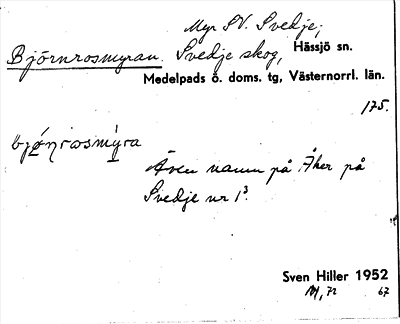 Myr SV. Svedje;
Björnrosmyran. Svedje skog, Hässjö sn.
Medelpads ö. doms. tg, Västernorrl. län.
175.
bjø̀ṇrωsmýra
Även namn på Åker på
Svedje nr 1³.
Sven Hiller 1952
M, 72 67